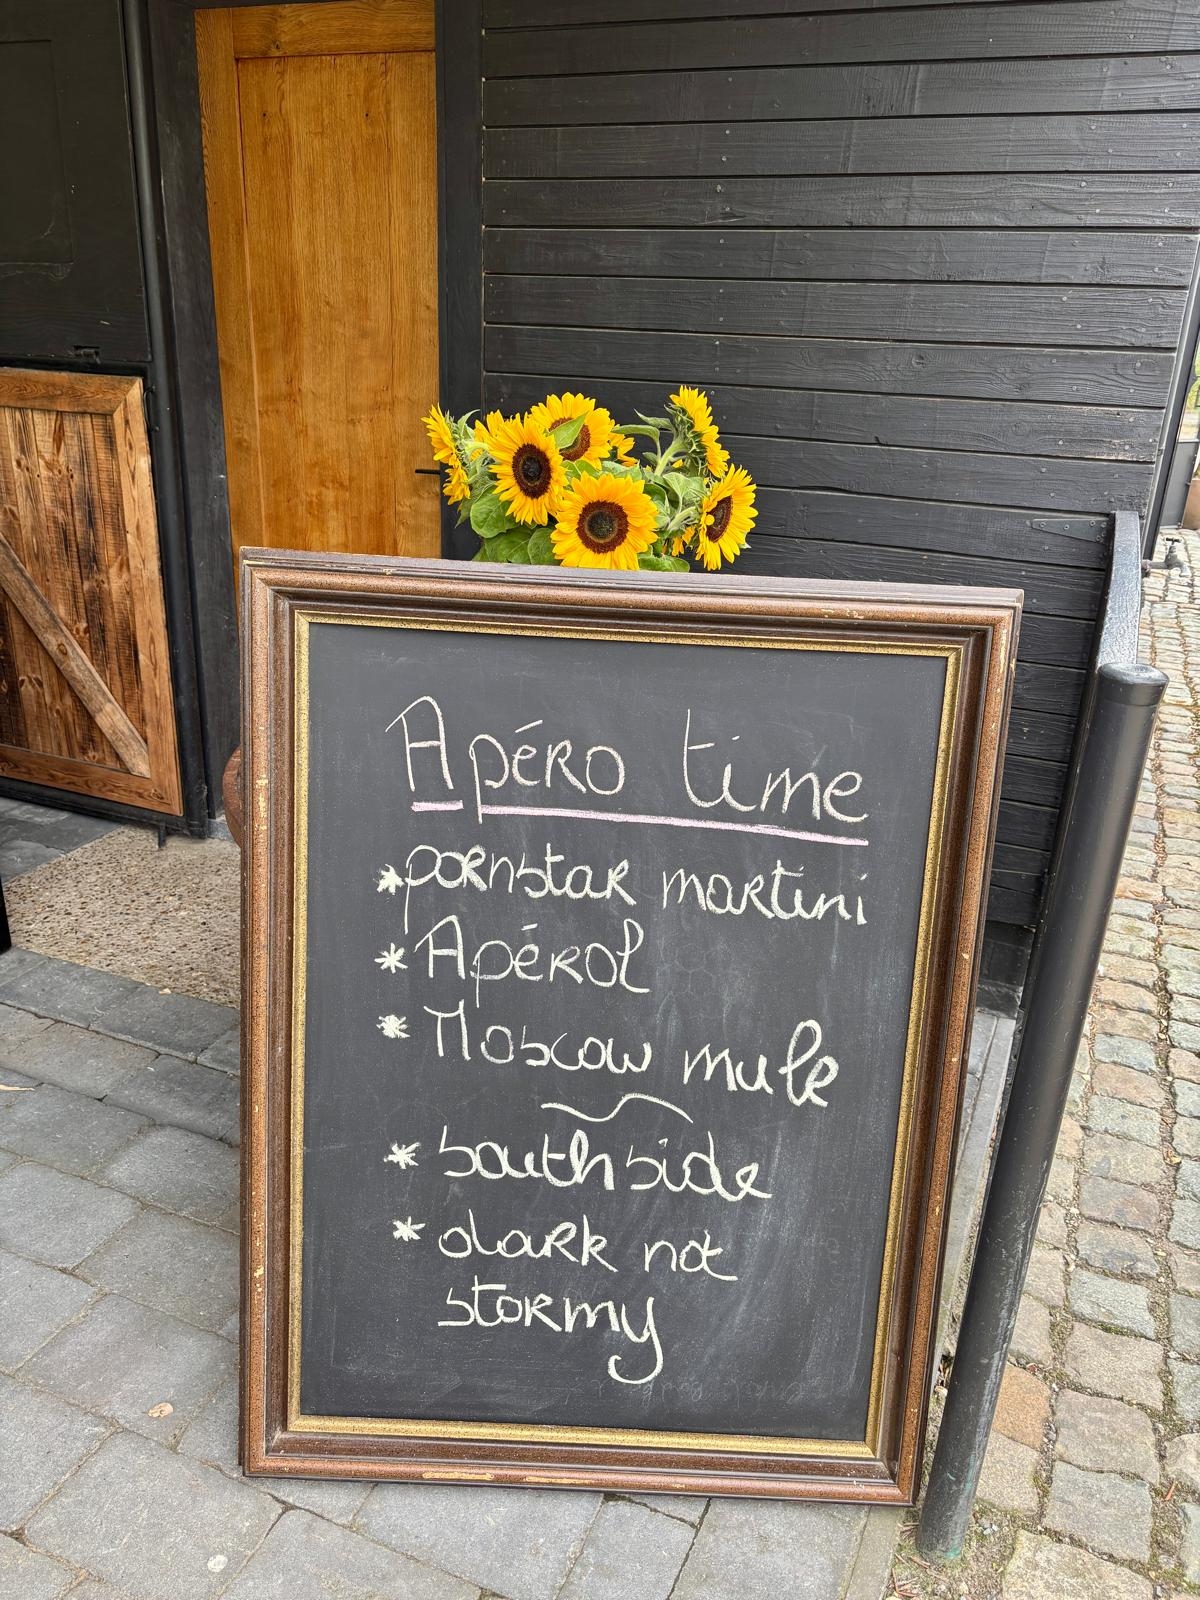 Apéro time
* pornstar martini
* Apérol
* Moscow mule
* southside
* dark not
stormy